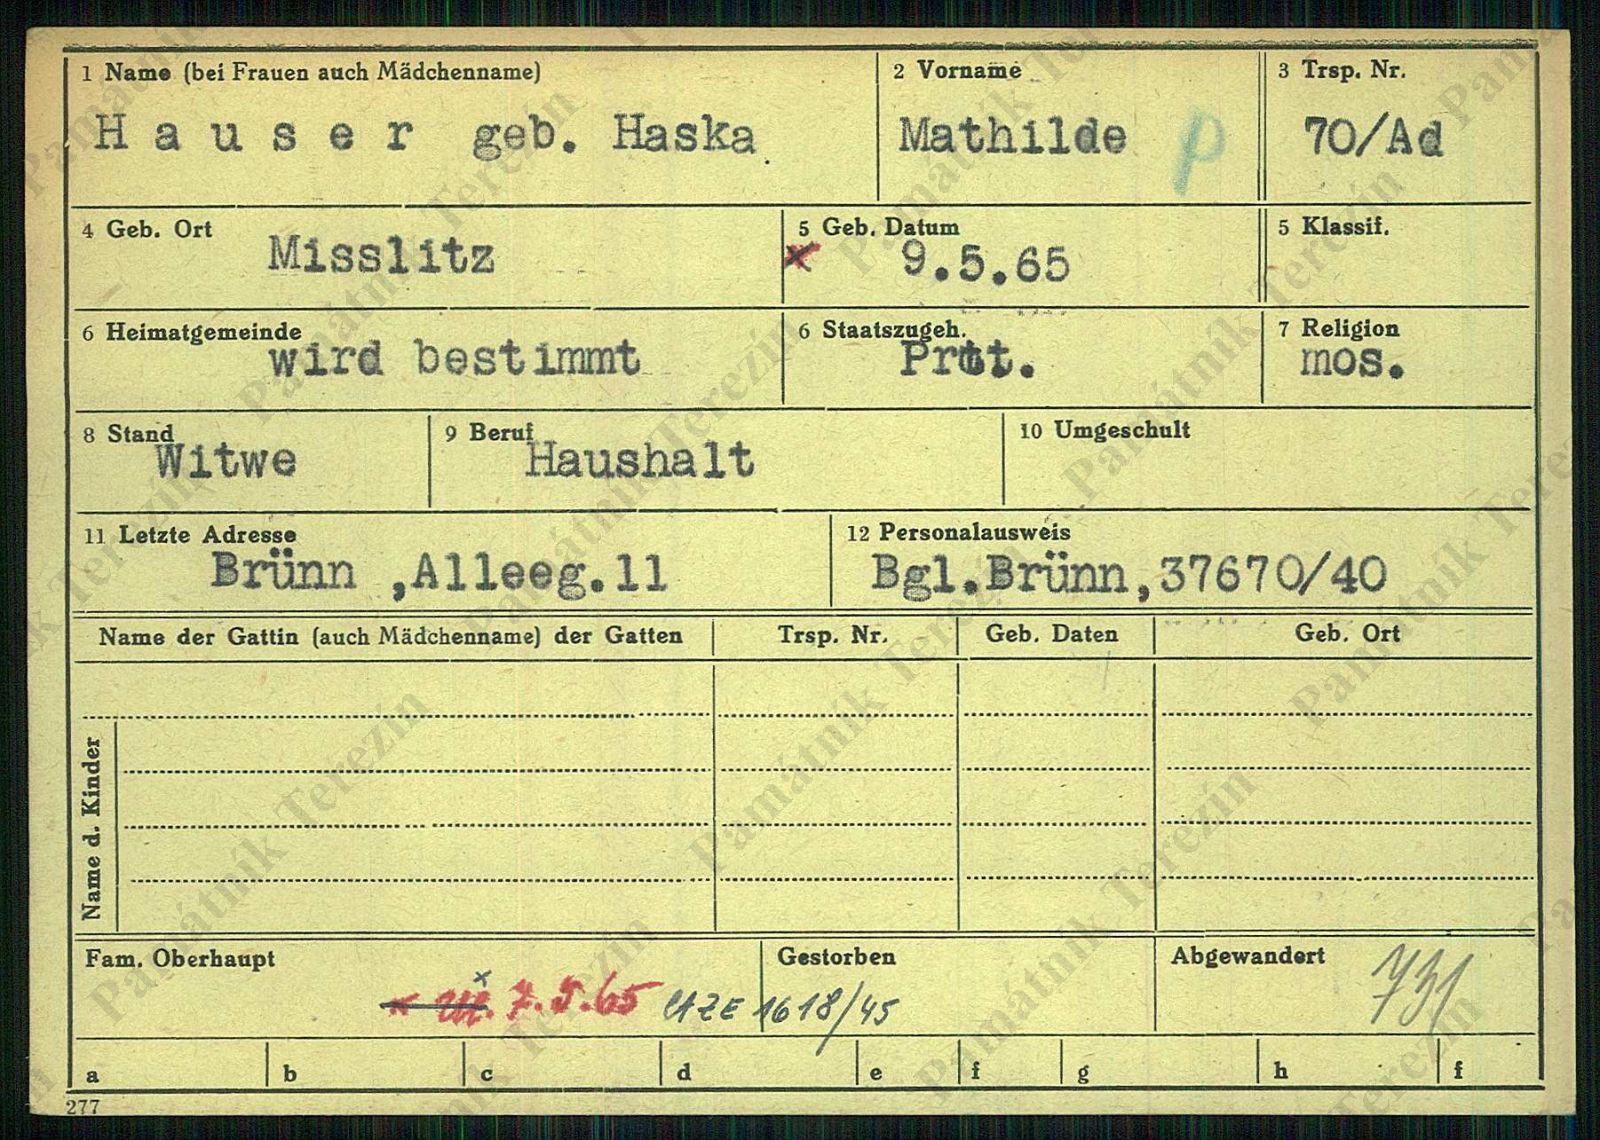 1 Name (bei Frauen auch Mädchenname)
Hauser geb. Haska
2 Vorname
Mathilde p
3 Trsp. Nr.
70/Ad
4 Geb. Ort
Misslitz
5 Geb. Datum
x 9.5.65
5 Klassif.
6 Heimatgemeinde
wird bestimmt
6 Staatszugeh.
Prot.
7 Religion
mos.
8 Stand
Witwe
9 Beruf
Haushalt
10 Umgeschult
11 Letzte Adresse
Brünn ,Alleeg.11
12 Personalausweis
Bgl.Brünn,37670/40
Name der Gattin (auch Mädchenname) der Gatten
Trsp. Nr.
Geb. Daten
Geb. Ort
Name d. Kinder
Fam. Oberhaupt
x 7.5.65 1618/45
Gestorben
Abgewandert
731
a b c d e f g h f
277
Památník Terezín